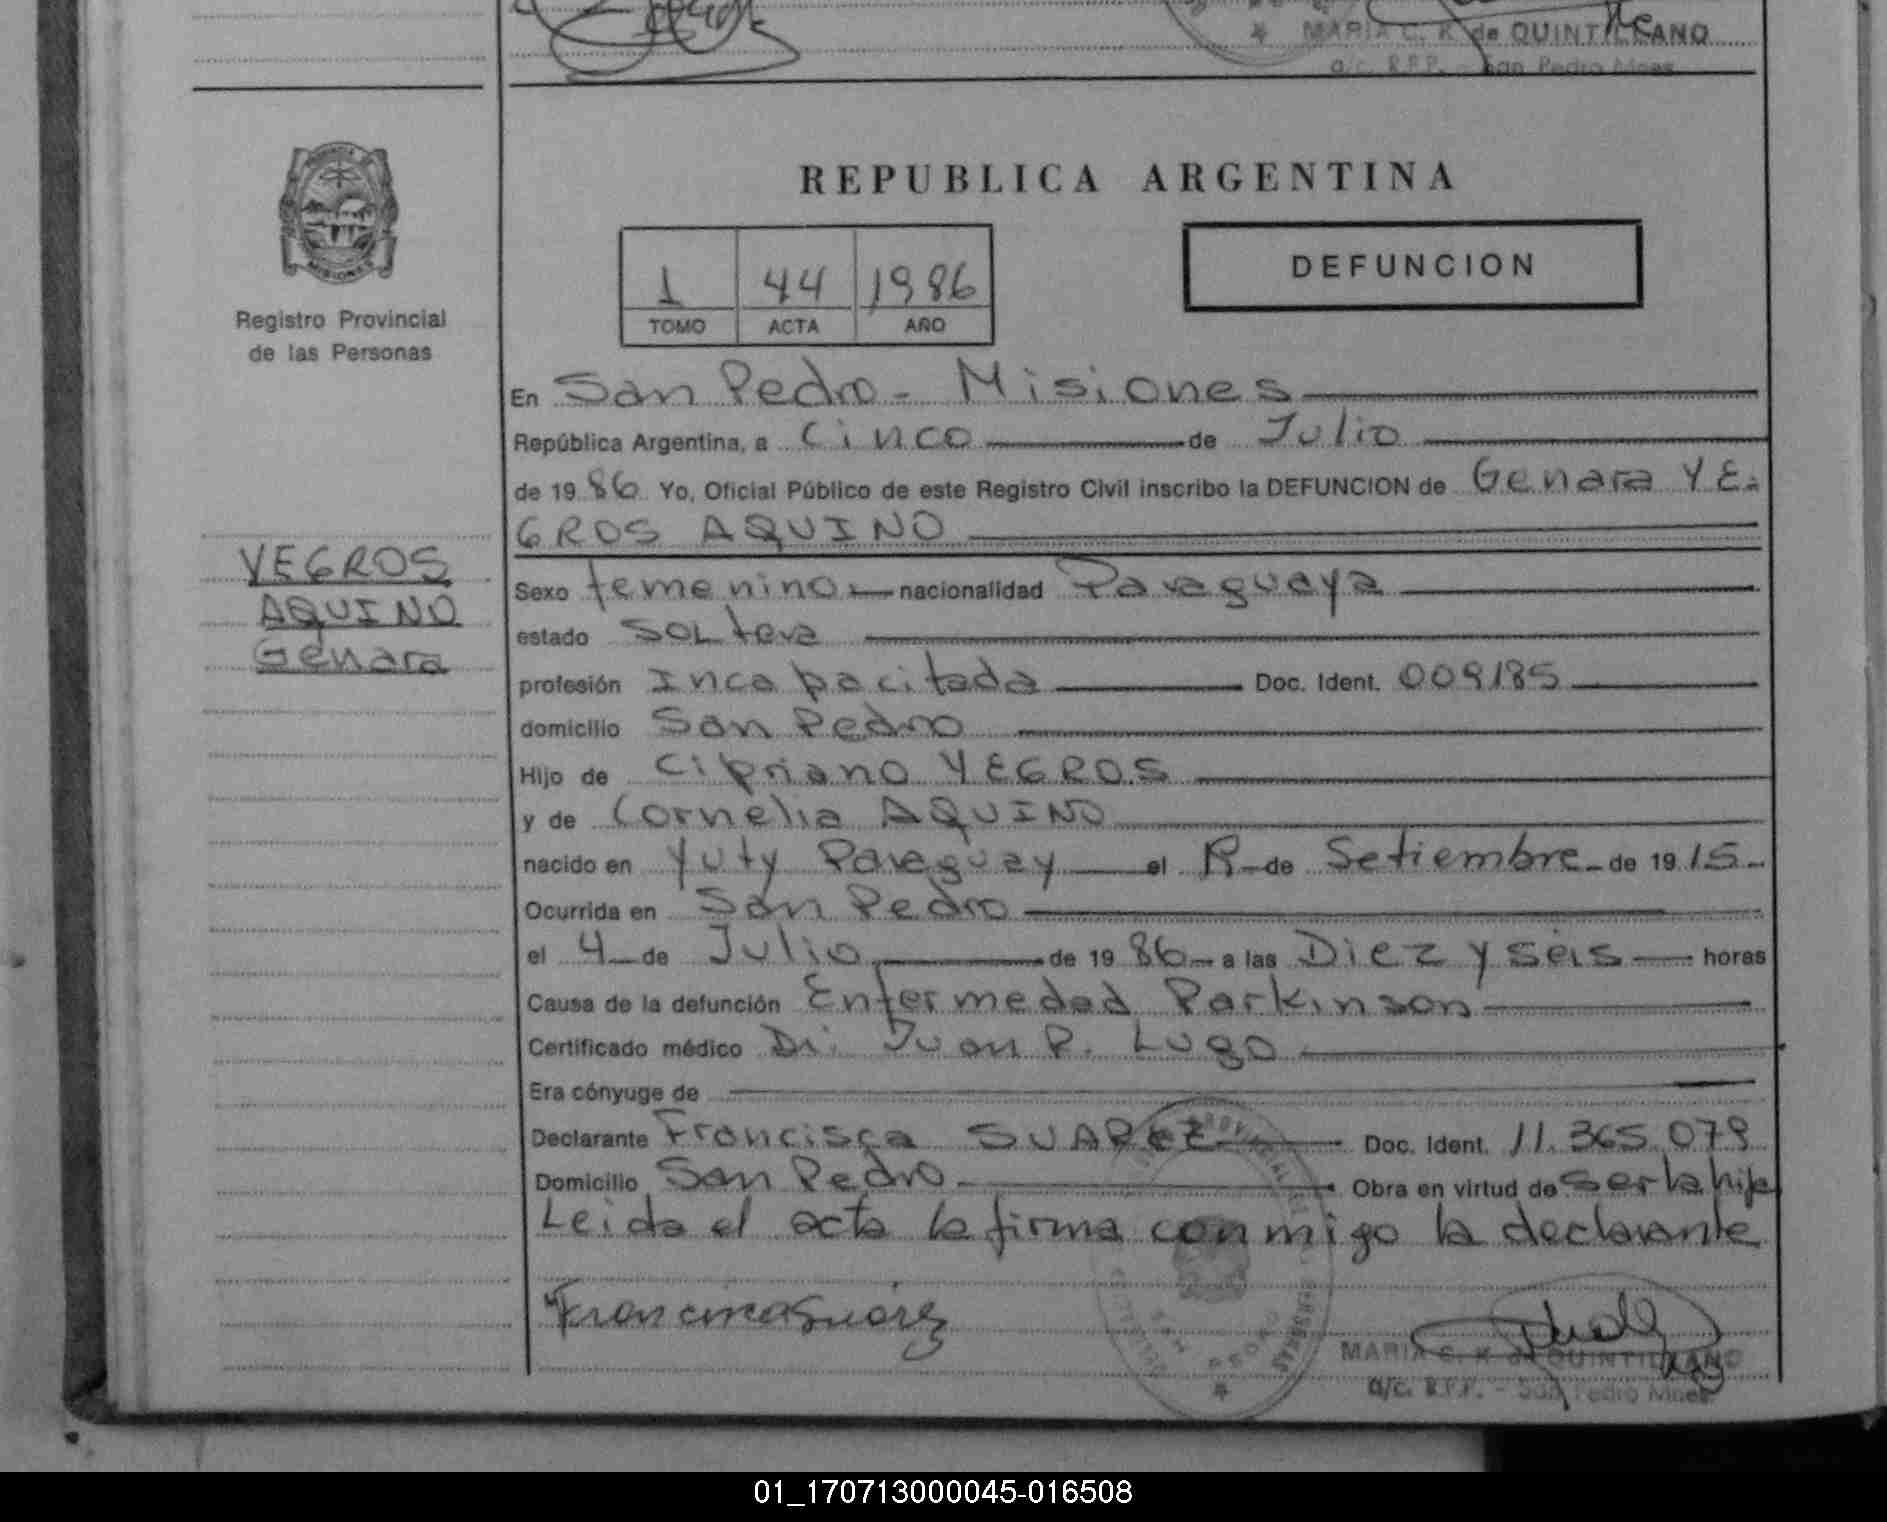 MARIA C. K. de QUINTILLANO
a/c. R.P.P. - San Pedro Mnes
PROVINCIA DE
MISIONES
Registro Provincial
de las Personas
REPUBLICA ARGENTINA
1 44 1986
TOMO ACTA AÑO
DEFUNCION
En San Pedro - Misiones
República Argentina, a Cinco de Julio
de 19 86 Yo, Oficial Público de este Registro Civil inscribo la DEFUNCION de Genara YE-
GROS AQUINO
YEGROS
AQUINO
Genara
Sexo femenino nacionalidad Paraguaya
estado Soltera
profesión Incapacitada Doc. Ident. 009185
domicilio San Pedro
Hijo de Cipriano YEGROS
y de Cornelia AQUINO
nacido en Yuty Paraguay el de Setiembre de 19 15
Ocurrida en San Pedro
el 4 de Julio de 19 86 a las Diez y seis horas
Causa de la defunción Enfermedad Parkinson
Certificado médico Dr. Juan P. Lugo
Era cónyuge de
Declarante Francisca SUAREZ Doc. Ident. 11.365.079
Domicilio San Pedro Obra en virtud de ser la hija
Leida el acta la firma conmigo la declarante
Francisca Suárez
MARIA C. K. de QUINTILLANO
a/c. R.P.P. - San Pedro Mnes
01_170713000045-016508